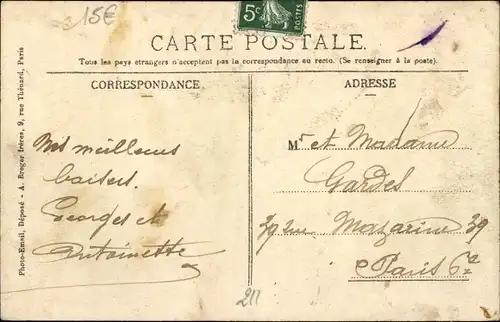 15€
5c
POSTES
CARTE POSTALE
Tous les pays étrangers n'acceptent pas la correspondance au recto. (Se renseigner à la poste).
CORRESPONDANCE
ADRESSE
Nos meilleurs
baisers.
Georges et
Antoinette
Mr et Madame
Gardes
39 rue Mazarine 39
Paris 6e
211
Photo-Email, Déposé - A. Breger frères, 9, rue Thénard, Paris